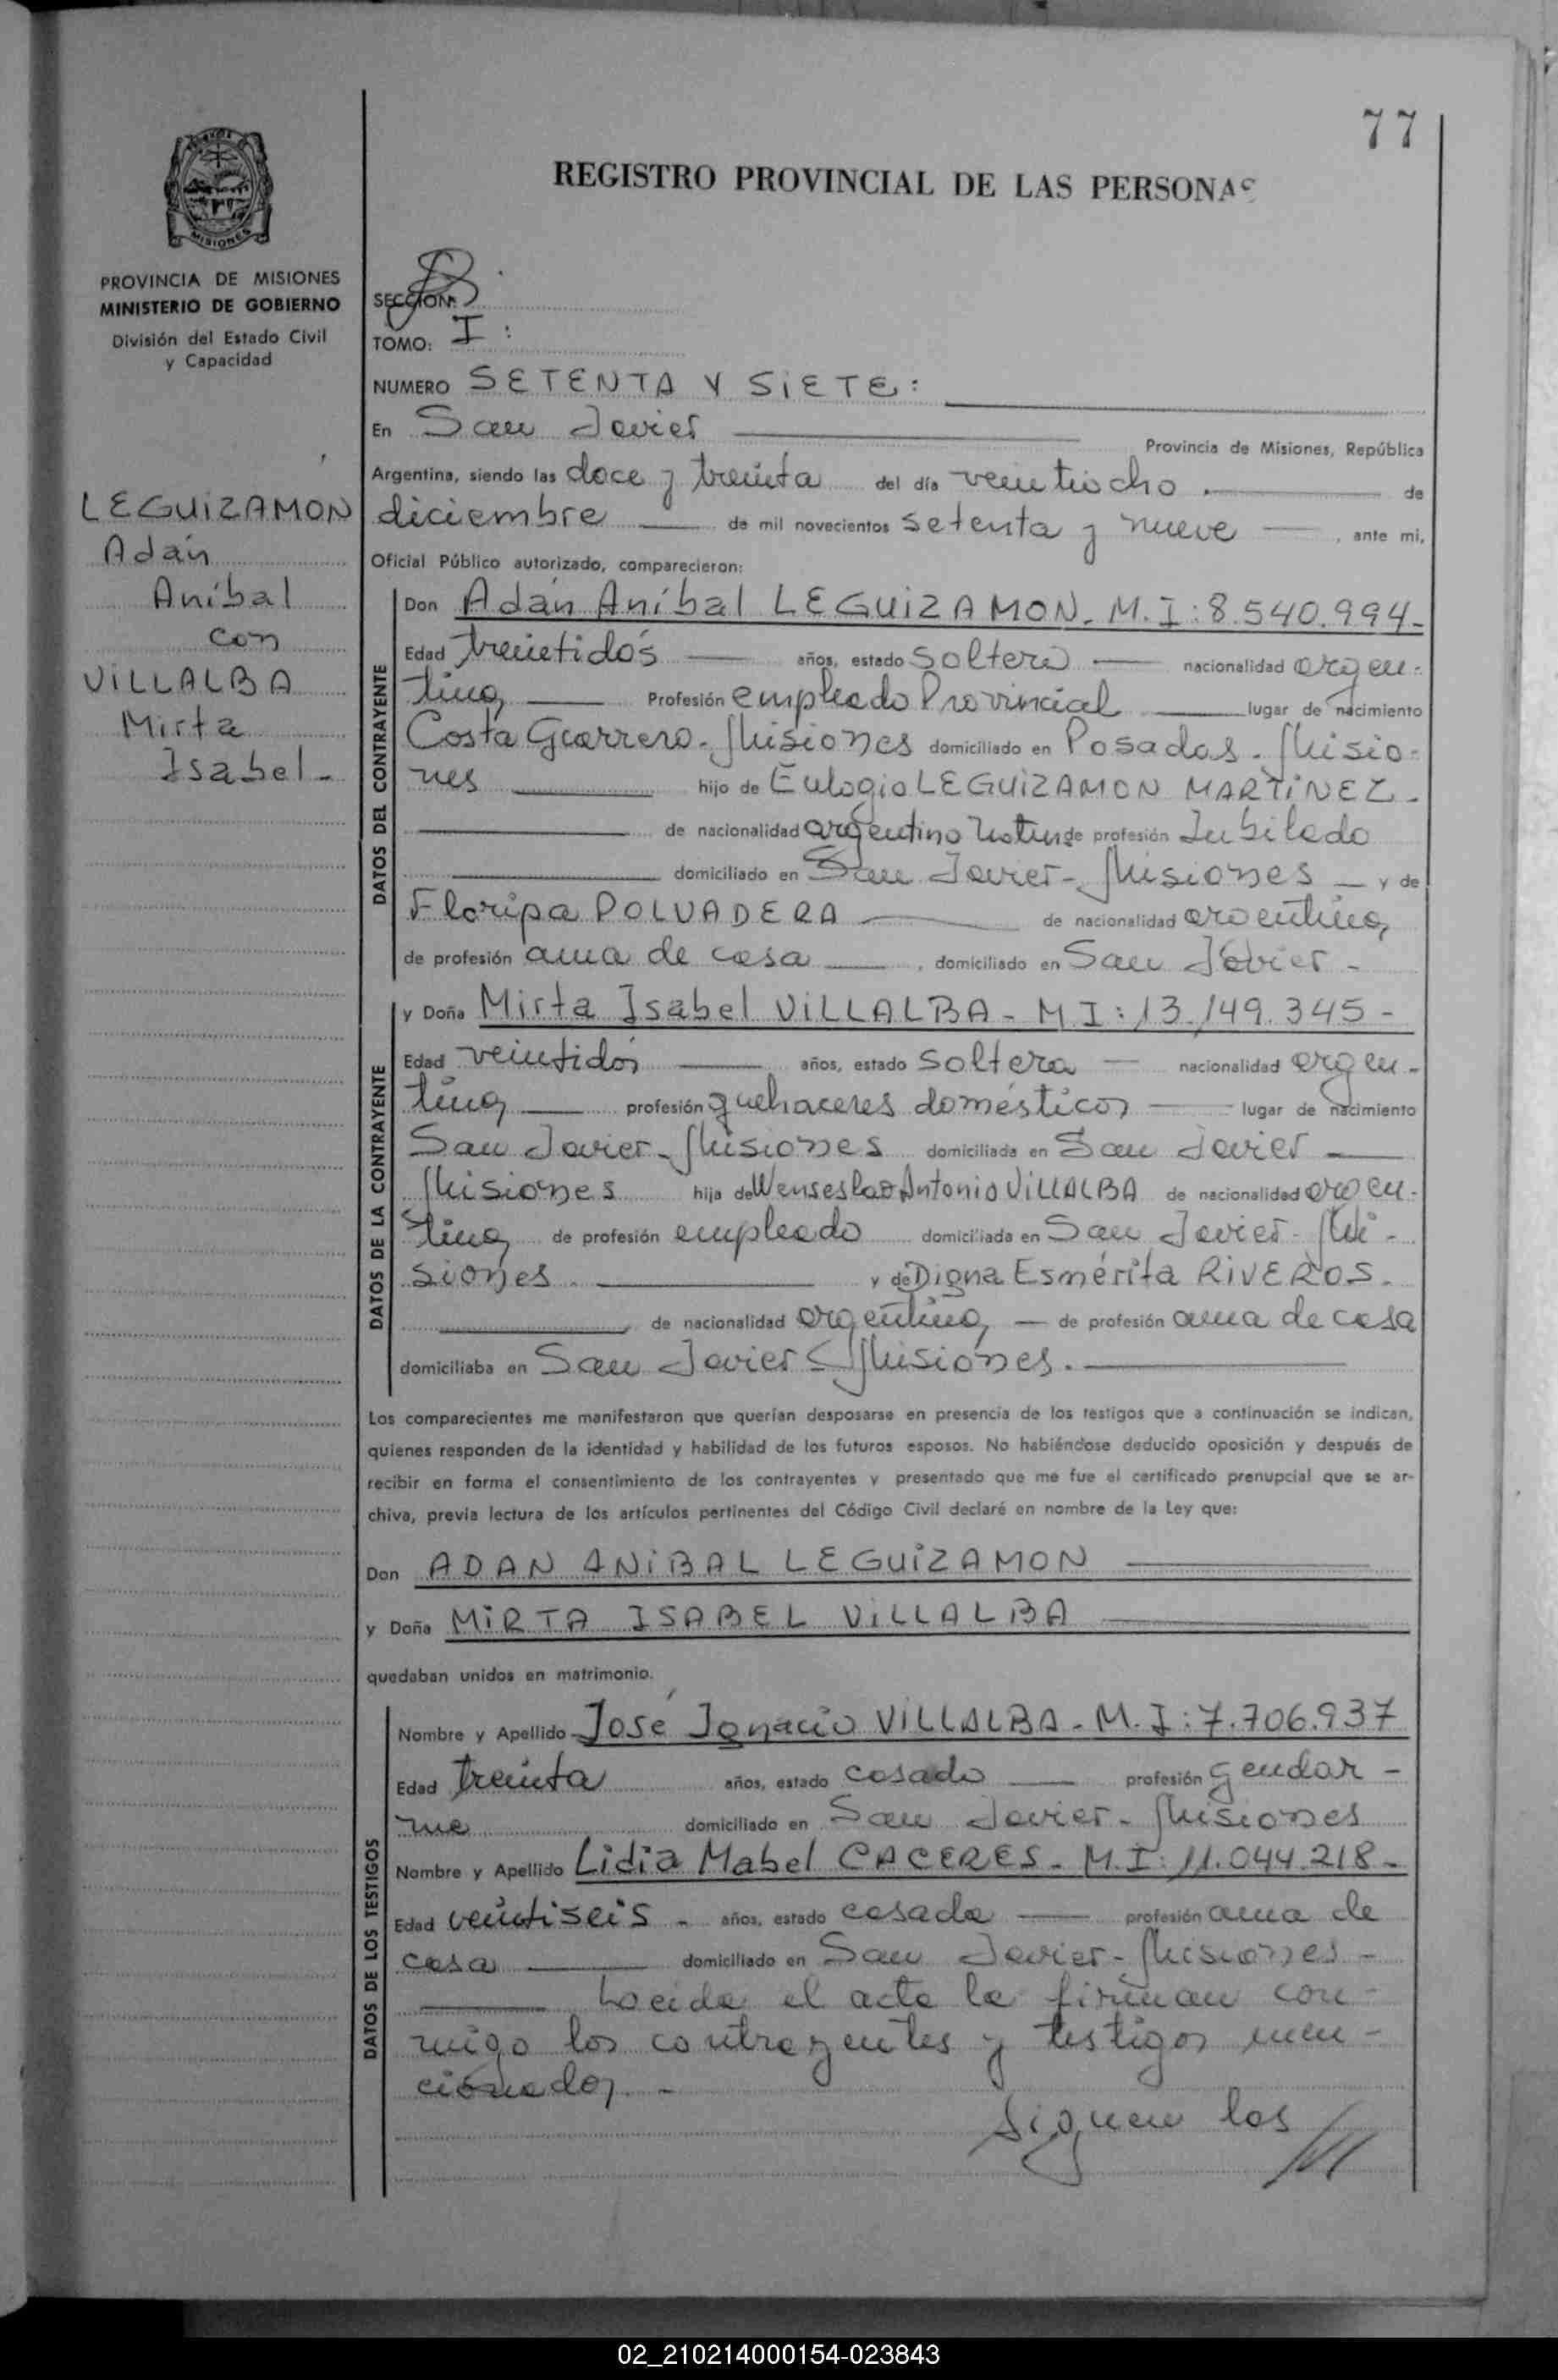 77
REGISTRO PROVINCIAL DE LAS PERSONAS
MISIONES
PROVINCIA DE MISIONES
MINISTERIO DE GOBIERNO
División del Estado Civil
y Capacidad
SECCION:
TOMO: I :
NUMERO SETENTA Y SiETE:
En San Javier Provincia de Misiones, República
Argentina, siendo las doce y treinta del día veintiocho de
diciembre de mil novecientos setenta y nueve, ante mi,
Oficial Público autorizado, comparecieron:
LEGUiZAMON
Adán
Aníbal
con
ViLLALBA
Mirta
Isabel-
DATOS DEL CONTRAYENTE
Don Adán Aníbal LEGUiZAMON. M.I: 8.540.994-
Edad treintidós años, estado soltero nacionalidad argen-
tina Profesión empleado Provincial lugar de nacimiento
Costa Guerrero. Misiones domiciliado en Posadas. Misio-
nes hijo de Eulogio LEGUiZAMON MARTiNEZ-
de nacionalidad argentino de profesión Jubilado
domiciliado en San Javier- Misiones y de
Floripa POLVADERA de nacionalidad argentina,
de profesión ama de casa, domiciliado en San Javier-
DATOS DE LA CONTRAYENTE
y Doña Mirta Isabel ViLLALBA- M I: 13.149.345-
Edad veintidós años, estado soltera nacionalidad argen-
tina profesión quehaceres domésticos lugar de nacimiento
San Javier- Misiones domiciliada en San Javier
Misiones hija de Wenseslao Antonio ViLLALBA de nacionalidad argen-
tina de profesión empleado domiciliada en San Javier- Mi-
siones. y de Digna Esmérita RiVEROS.
de nacionalidad argentina, de profesión ama de casa
domiciliaba en San Javier Misiones.
Los comparecientes me manifestaron que querían desposarse en presencia de los testigos que a continuación se indican,
quienes responden de la identidad y habilidad de los futuros esposos. No habiéndose deducido oposición y después de
recibir en forma el consentimiento de los contrayentes y presentado que me fue el certificado prenupcial que se ar-
chiva, previa lectura de los artículos pertinentes del Código Civil declaré en nombre de la Ley que:
Don ADAN ANiBAL LEGUiZAMON
y Doña MiRTA ISABEL ViLLALBA
quedaban unidos en matrimonio.
DATOS DE LOS TESTIGOS
Nombre y Apellido José Ignacio ViLLALBA- M. I: 7.706.937
Edad treinta años, estado casado profesión gendar-
me domiciliado en San Javier- Misiones
Nombre y Apellido Lidia Mabel CACERES- M.I: 11.044.218-
Edad veintiseis - años, estado casada profesión ama de
casa domiciliado en San Javier- Misiones-
Leída el acta la firman con-
migo los contrayentes y testigos men-
cionados.-
Siguen las
02_210214000154-023843